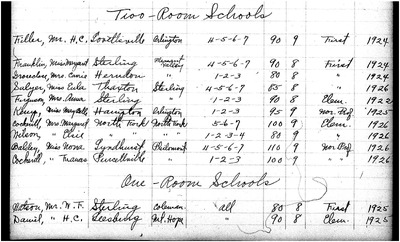 Two-Room Schools
Filler, Mr. H.C. Lovettsville Arlington 4-5-6-7 90 9 First 1924
Franklin, Miss Sterling 4-5-6-7 90 8 First 1924
Mrs. Herndon " 1-2-3 80 8 " 1924
Miss Eula Sterling 4-5-6-7 85 8 " 1926
Ferguson, Mrs. Anna Sterling " 1-2-3 90 8 Elem. 1922
Kemp, Miss Arlington 1-2-3 95 9 Nor. Prof 1925
Cockrill, Mrs. Margaret North Fork North Fork 5-6-7 100 9 Elem. 1926
Wilson, " " " 1-2-3-4 80 9 " 1926
Miss Nona Lyndhurst Philomont 4-5-6-7 110 9 Nor. Prof 1926
Cockrill, " Frances Purcellville " 1-2-3 100 9 " 1926
One-Room Schools
Mr. W.F. Sterling Coleman all 80 8 First 1925
Daniel, " H.C. Leesburg Mt. Hope " 90 8 Elem. 1925